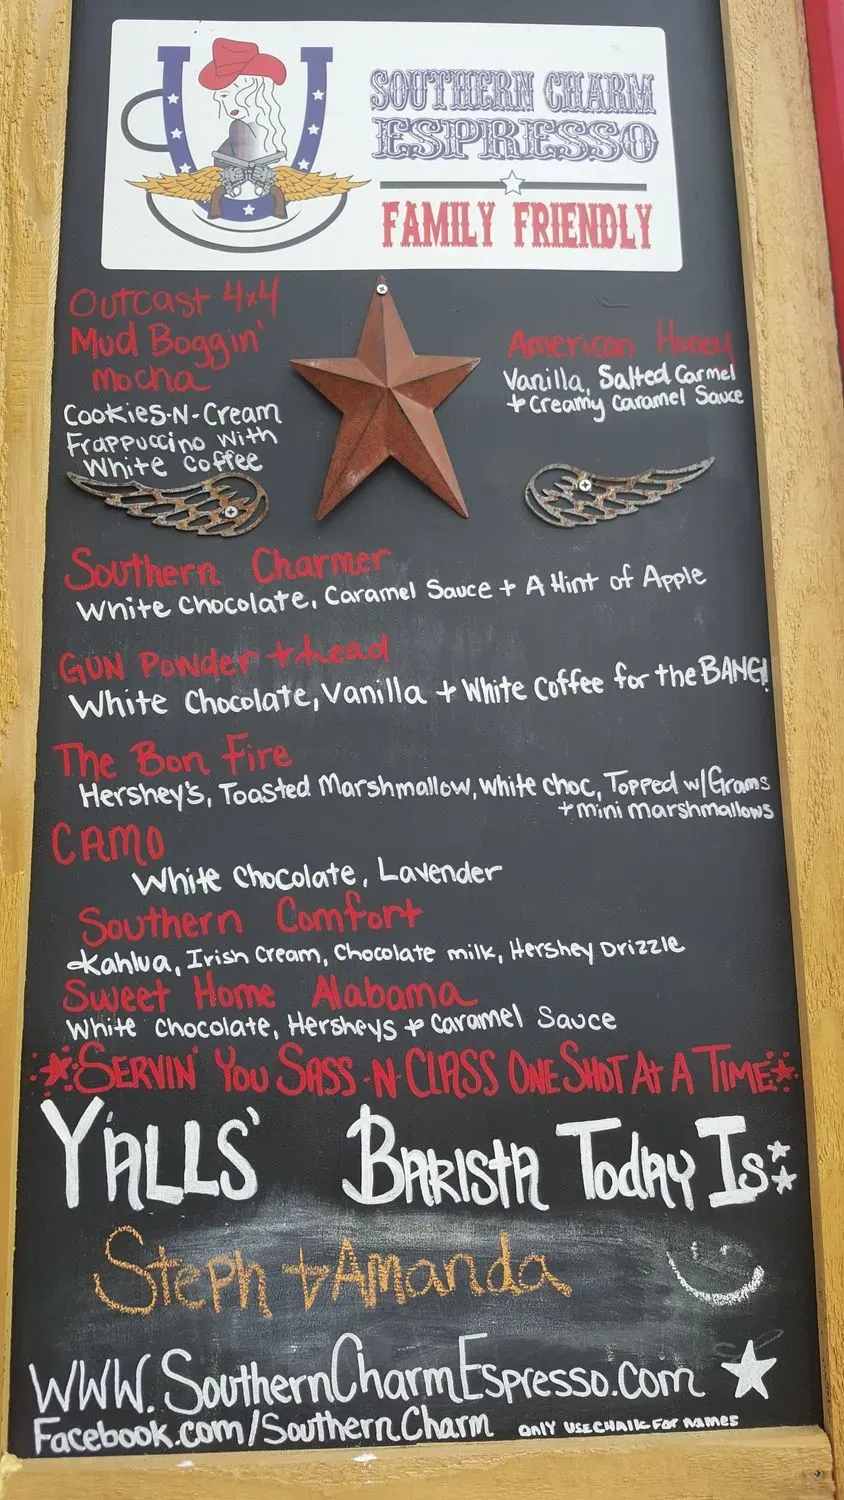 SOUTHERN CHARM
ESPRESSO
FAMILY FRIENDLY
Outcast 4x4
Mud Boggin'
Mocha
Cookies-N-Cream
Frappuccino with
White Coffee
American Honey
Vanilla, Salted Carmel
+ Creamy Caramel Sauce
Southern Charmer
White Chocolate, Caramel Sauce + A Hint of Apple
GUN Powder + Lead
White Chocolate, Vanilla + White Coffee for the BANG!
The Bon Fire
Hershey's, Toasted Marshmallow, White Choc, Topped w/Grams
+ mini marshmallows
CAMO
White Chocolate, Lavender
Southern Comfort
Kahlua, Irish Cream, Chocolate milk, Hershey Drizzle
Sweet Home Alabama
White Chocolate, Hersheys + Caramel Sauce
SERVIN' YOU SASS-N-CLASS ONE SHOT AT A TIME
Y'ALLS' BARISTA TODAY IS:
Steph + Amanda
WWW.SouthernCharmEspresso.com
Facebook.com/SouthernCharm
ONLY USE CHALK FOR NAMES